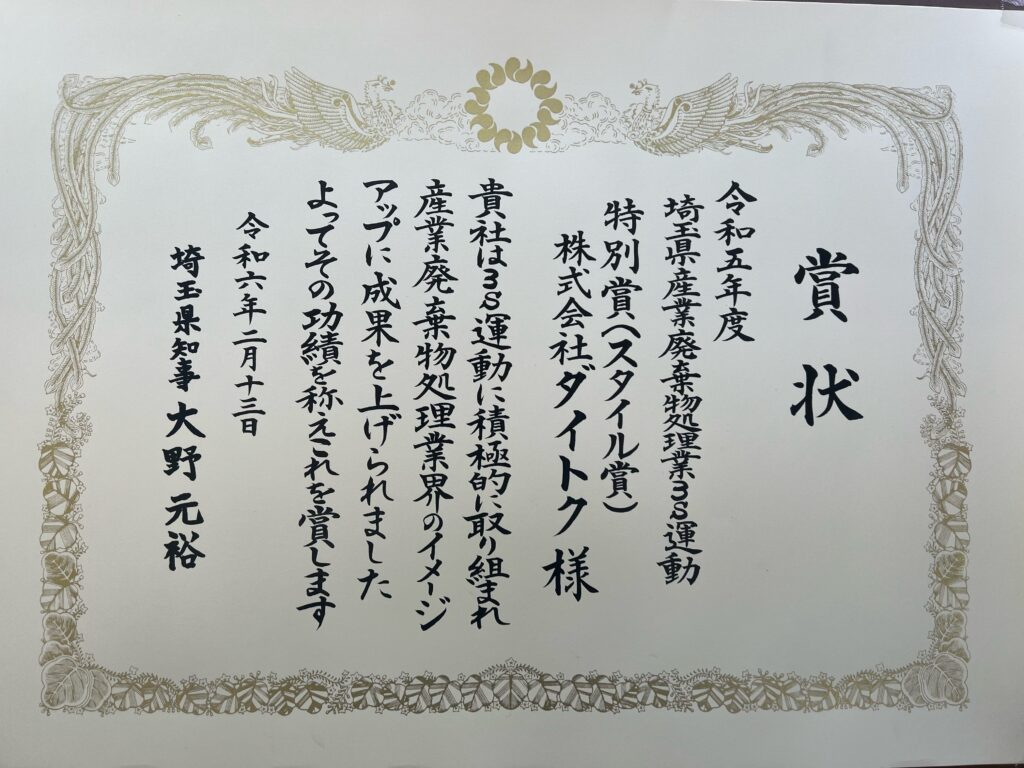 賞状
令和五年度
埼玉県産業廃棄物処理業3S運動
特別賞(スタイル賞)
株式会社ダイトク様
貴社は3S運動に積極的に取り組まれ
産業廃棄物処理業界のイメージ
アップに成果を上げられました
よってその功績を称えこれを賞します
令和六年二月十三日
埼玉県知事大野元裕